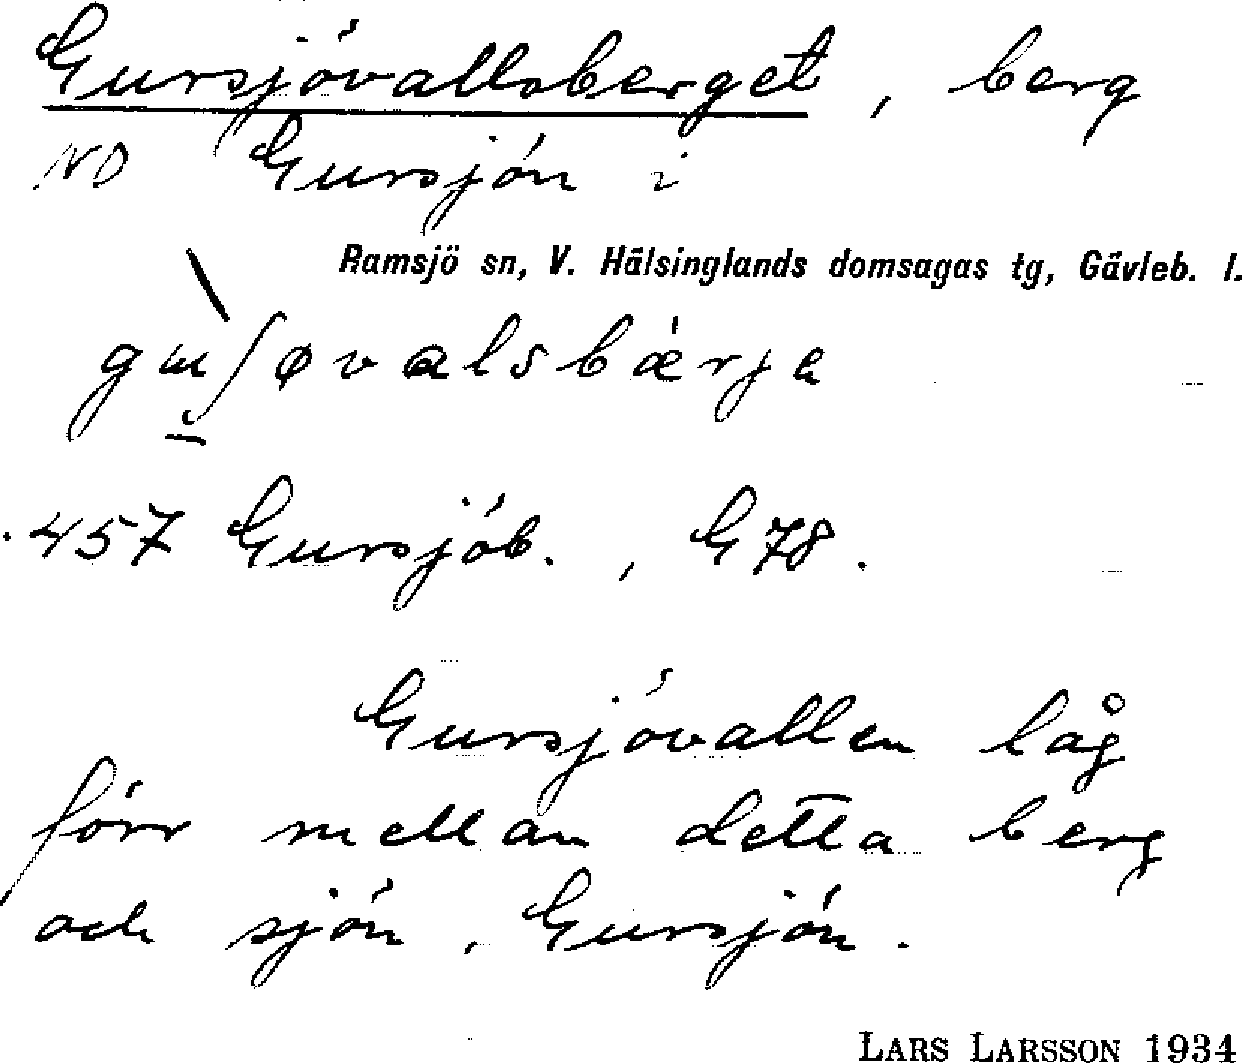 Gursjövallsberget, berg
NO Gursjön i
Ramsjö sn, V. Hälsinglands domsagas tg, Gävleb. l.
457 Gursjöb., G78.
Gursjövallen låg
förr mellan detta berg
och sjön, Gursjön.
LARS LARSSON 1934